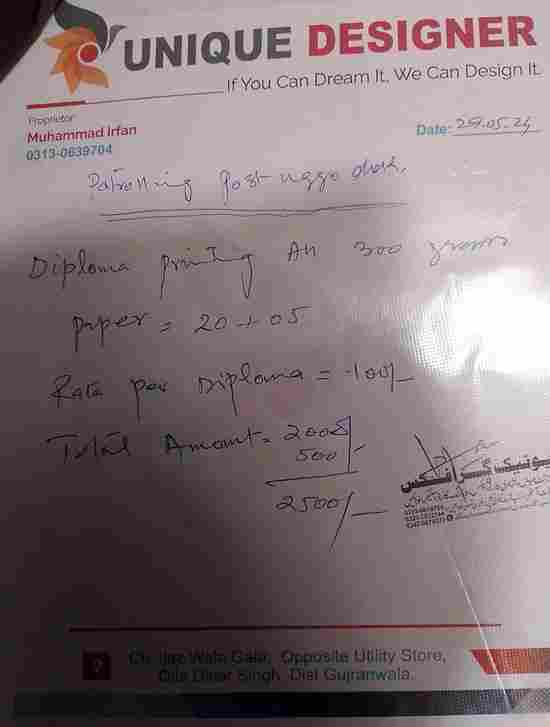 UNIQUE DESIGNER
If You Can Dream It, We Can Design It.
Proprietor
Muhammad Irfan
0313-0639704
Date: 29.05.24
Patrolling Post
Diploma printing A4 300 grams
paper = 20 + 05
Rate per Diploma = 100/-
Total Amount = 2000
500/-
2500/-
یونیک گرافکس
Wala Gala, Opposite Utility Store,
Qila Didar Singh, Dist Gujranwala.